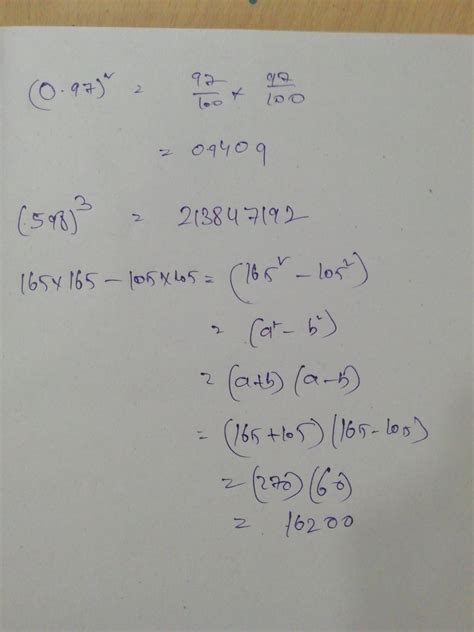 (0.97)² = 97/100 × 97/100
= 09409
(598)³ = 213847192
165×165 - 105×105 = (165² - 105²)
= (a² - b²)
= (a+b) (a-b)
= (165+105) (165-105)
= (270) (60)
= 16200